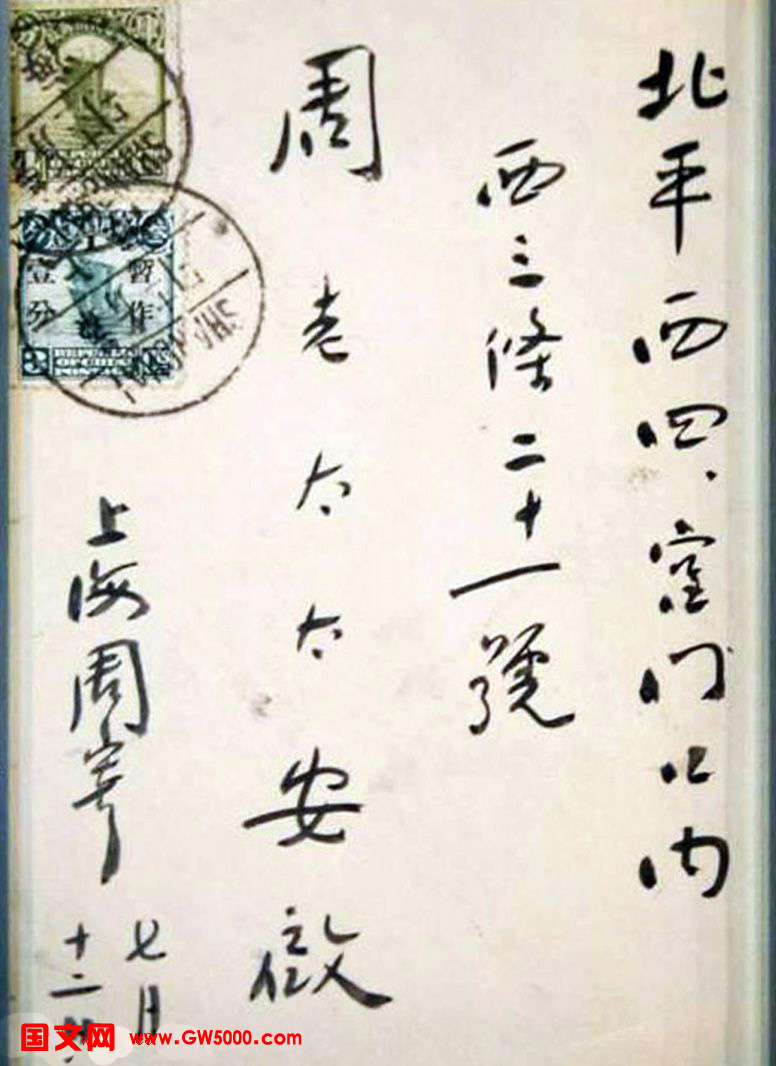 北平西四、宫门口内
西三條二十一號
周老太太安啟
上海周寄
七月
十二
暫作
壹分
SHANGHAI
国文网 www.GW5000.com